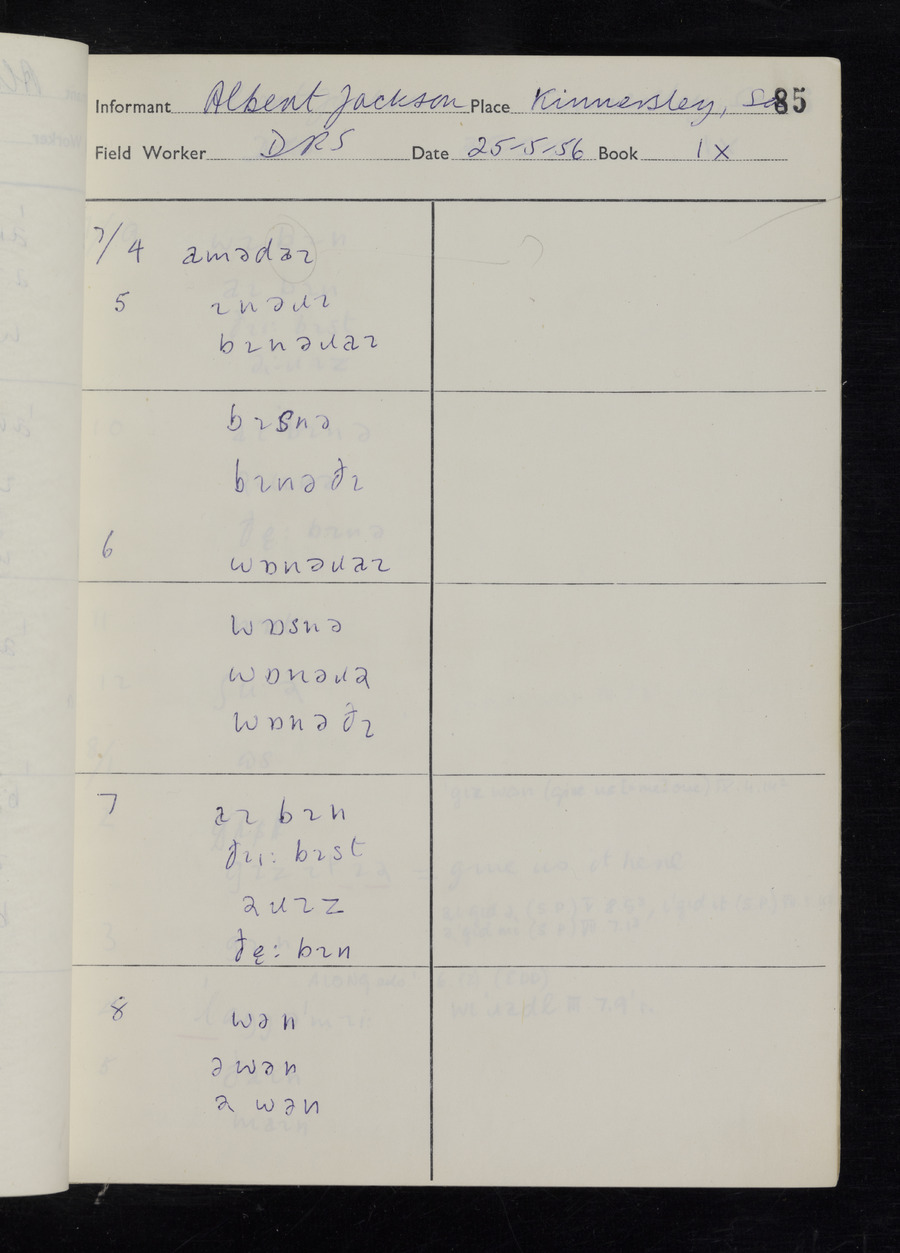 Informant Albert Jackson Place Kinnersley, Sa 85
Field Worker DRS Date 25-5-56 Book IX
7/4 amədəɪ
5 ɪnəɹɪ
bɪnəɹaɪ
bɪsnə
bɪnə ðɪ
6
wɒnəɹaɪ
wɒsnə
wɒnəɹə
wɒnə ðɪ
7 aɪ bɪn
ðɪ: bɪst
əɹɪz
ðɛ: bɪn
8 wən
ə wən
ə wən